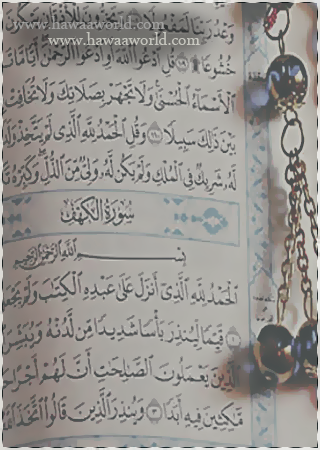 www.hawaaworld.com
www.hawaaworld.com
وَعْدُ رَبِّنَا لَمَفْعُولًا
خُشُوعًا ۩ ١٠٩ قُلِ ادْعُوا اللَّهَ أَوِ ادْعُوا الرَّحْمَٰنَ أَيًّا مَّا
الْأَسْمَاءُ الْحُسْنَىٰ وَلَا تَجْهَرْ بِصَلَاتِكَ وَلَا تُخَافِتْ
بَيْنَ ذَٰلِكَ سَبِيلًا ١١٠ وَقُلِ الْحَمْدُ لِلَّهِ الَّذِي لَمْ يَتَّخِذْ وَلَدًا
لَّهُ شَرِيكٌ فِي الْمُلْكِ وَلَمْ يَكُن لَّهُ وَلِيٌّ مِّنَ الذُّلِّ وَكَبِّرْهُ
سُورَةُ الْكَهْفِ
بِسْمِ اللَّهِ الرَّحْمَٰنِ الرَّحِيمِ
الْحَمْدُ لِلَّهِ الَّذِي أَنزَلَ عَلَىٰ عَبْدِهِ الْكِتَابَ وَلَمْ يَجْعَل
١ قَيِّمًا لِّيُنذِرَ بَأْسًا شَدِيدًا مِّن لَّدُنْهُ وَيُبَشِّرَ
الَّذِينَ يَعْمَلُونَ الصَّالِحَاتِ أَنَّ لَهُمْ أَجْرًا
مَّاكِثِينَ فِيهِ أَبَدًا ٣ وَيُنذِرَ الَّذِينَ قَالُوا اتَّخَذَ